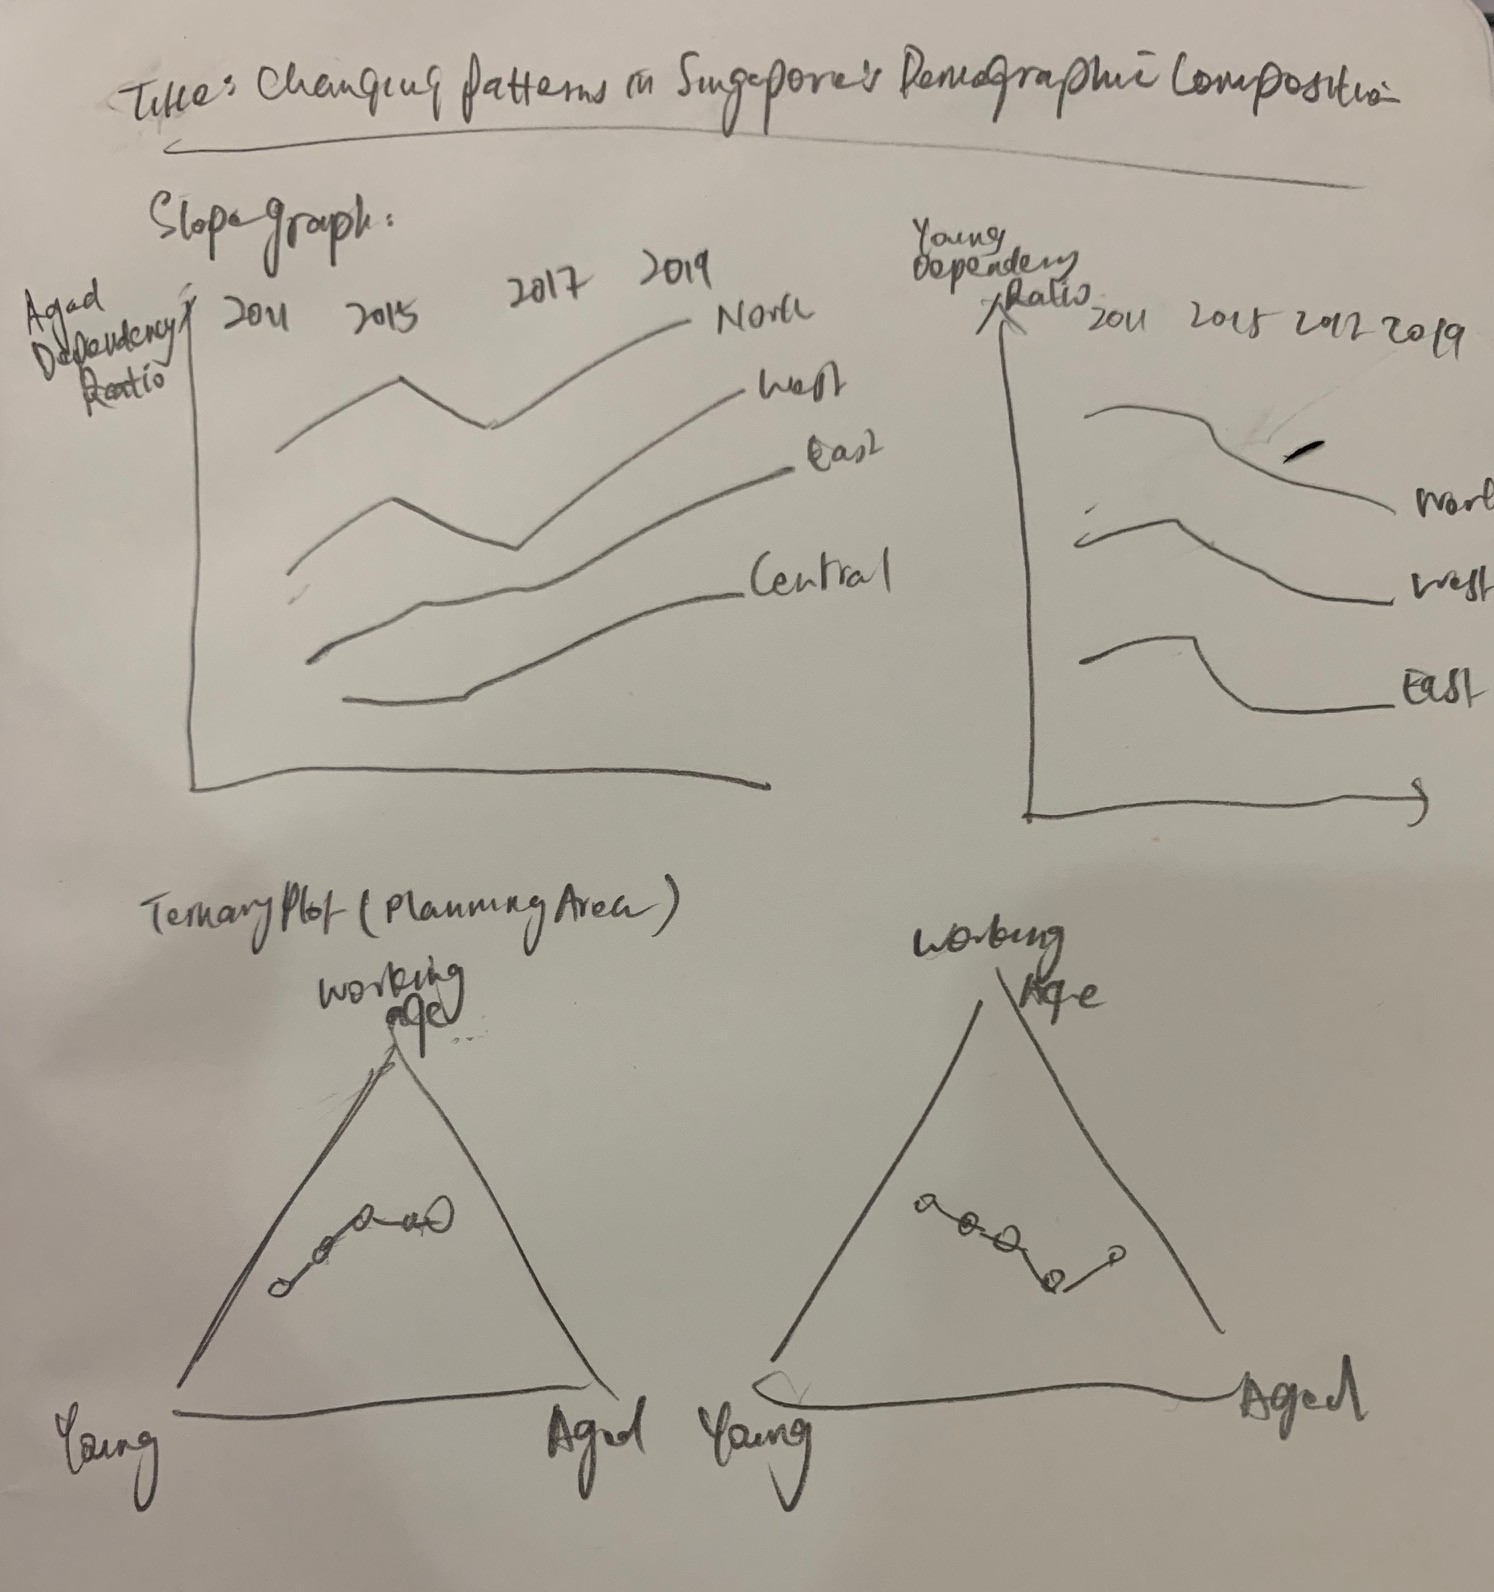 Title: Changing Patterns in Singapore's Demographic Composition
Slopegraph:
Aged
Dependency
Ratio
2011
2015
2017
2019
North
West
East
Central
Young
Dependency
Ratio
2011
2015
2017
2019
West
East
Ternary Plot (Planning Area)
Working
age
Young
Aged
Working
Age
Young
Aged